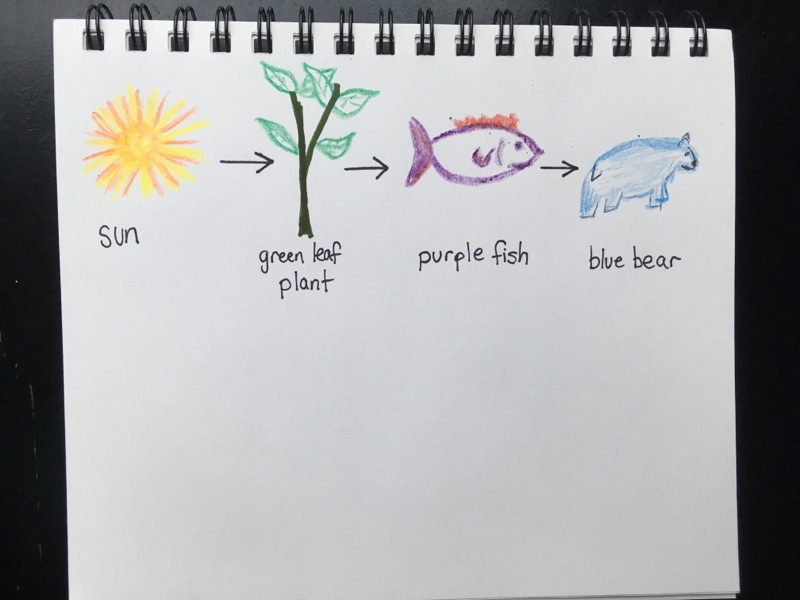 sun
green leaf
plant
purple fish
blue bear